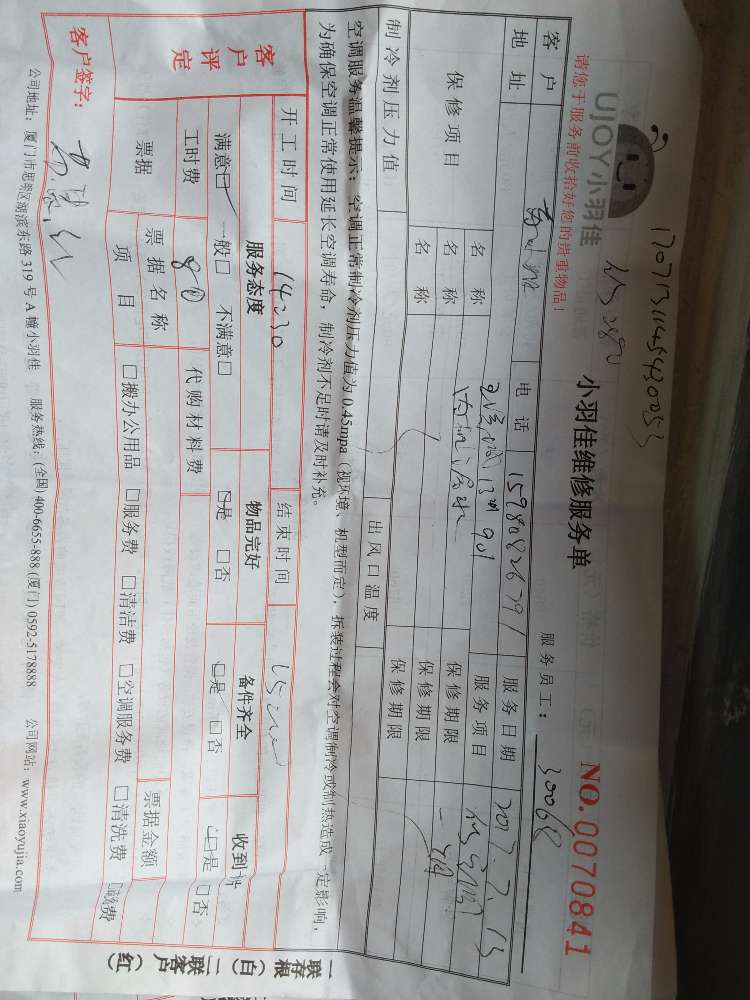 1707131145430053
请您于服务前收拾好您的贵重物品!
UJOY小羽佳
小羽佳维修服务单
NO. 0070841
服务员工: 30068
客户 电话 15980826791 服务日期 2017.7.13
地址 901 服务项目
保修项目 名称 保修期限
名称 保修期限
名称 保修期限
制冷剂压力值 出风口温度
空调服务温馨提示: 空调正常制冷剂压力值为0.45mpa (视环境、机型而定), 拆装过程会对空调制冷或制热造成一定影响,
为确保空调正常使用延长空调寿命, 制冷剂不足时请及时补充。
开工时间 14:30 结束时间
客户评定 服务态度 物品完好 备件齐全 收到
满意☑ 一般□ 不满意□ □是 □否 □是 □否 □是 □否
工时费 80 代购材料费
票据 票据名称 票据金额
项目 □搬办公用品 □服务费 □清洁费 □空调服务费 □清洗费 □
客户签字:
公司地址: 厦门市思明区湖滨东路319号A幢小羽佳 服务热线: (全国)400-6655-888 (厦门) 0592-5178888 公司网站: www.xiaoyujia.com
一联存根(白) 二联客户(红)